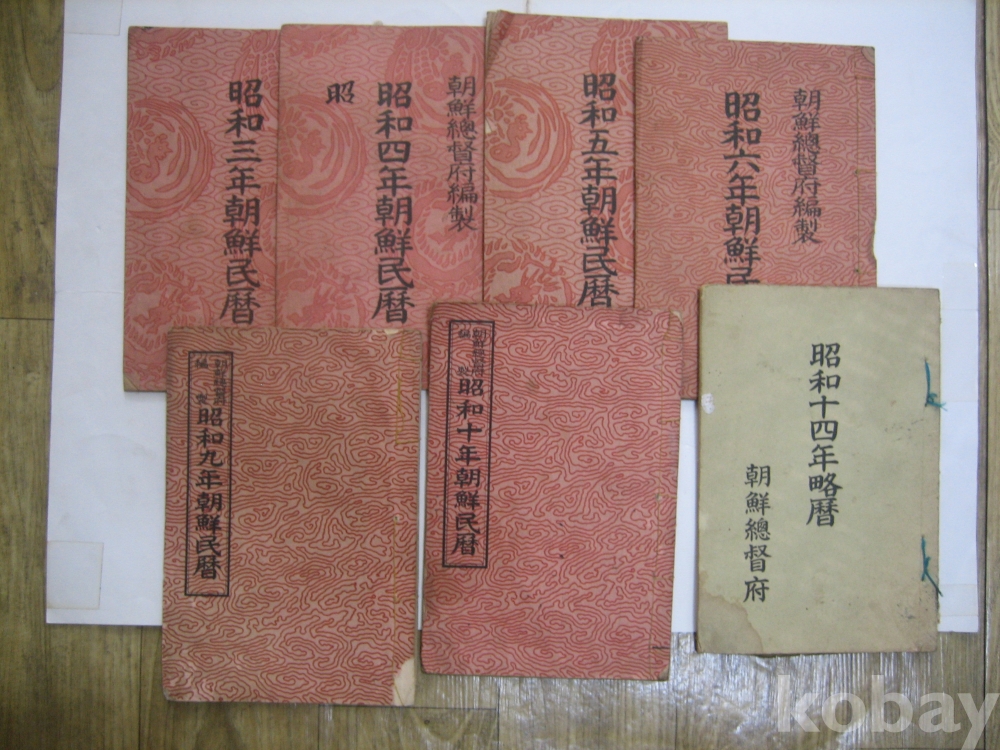 昭和三年朝鮮民曆
朝鮮總督府編製
昭和四年朝鮮民曆
昭
昭和五年朝鮮民曆
朝鮮總督府編製
昭和六年朝鮮民
朝鮮總督府
編製
昭和九年朝鮮民曆
朝鮮總督府
編製
昭和十年朝鮮民曆
昭和十四年略曆
朝鮮總督府
kobay